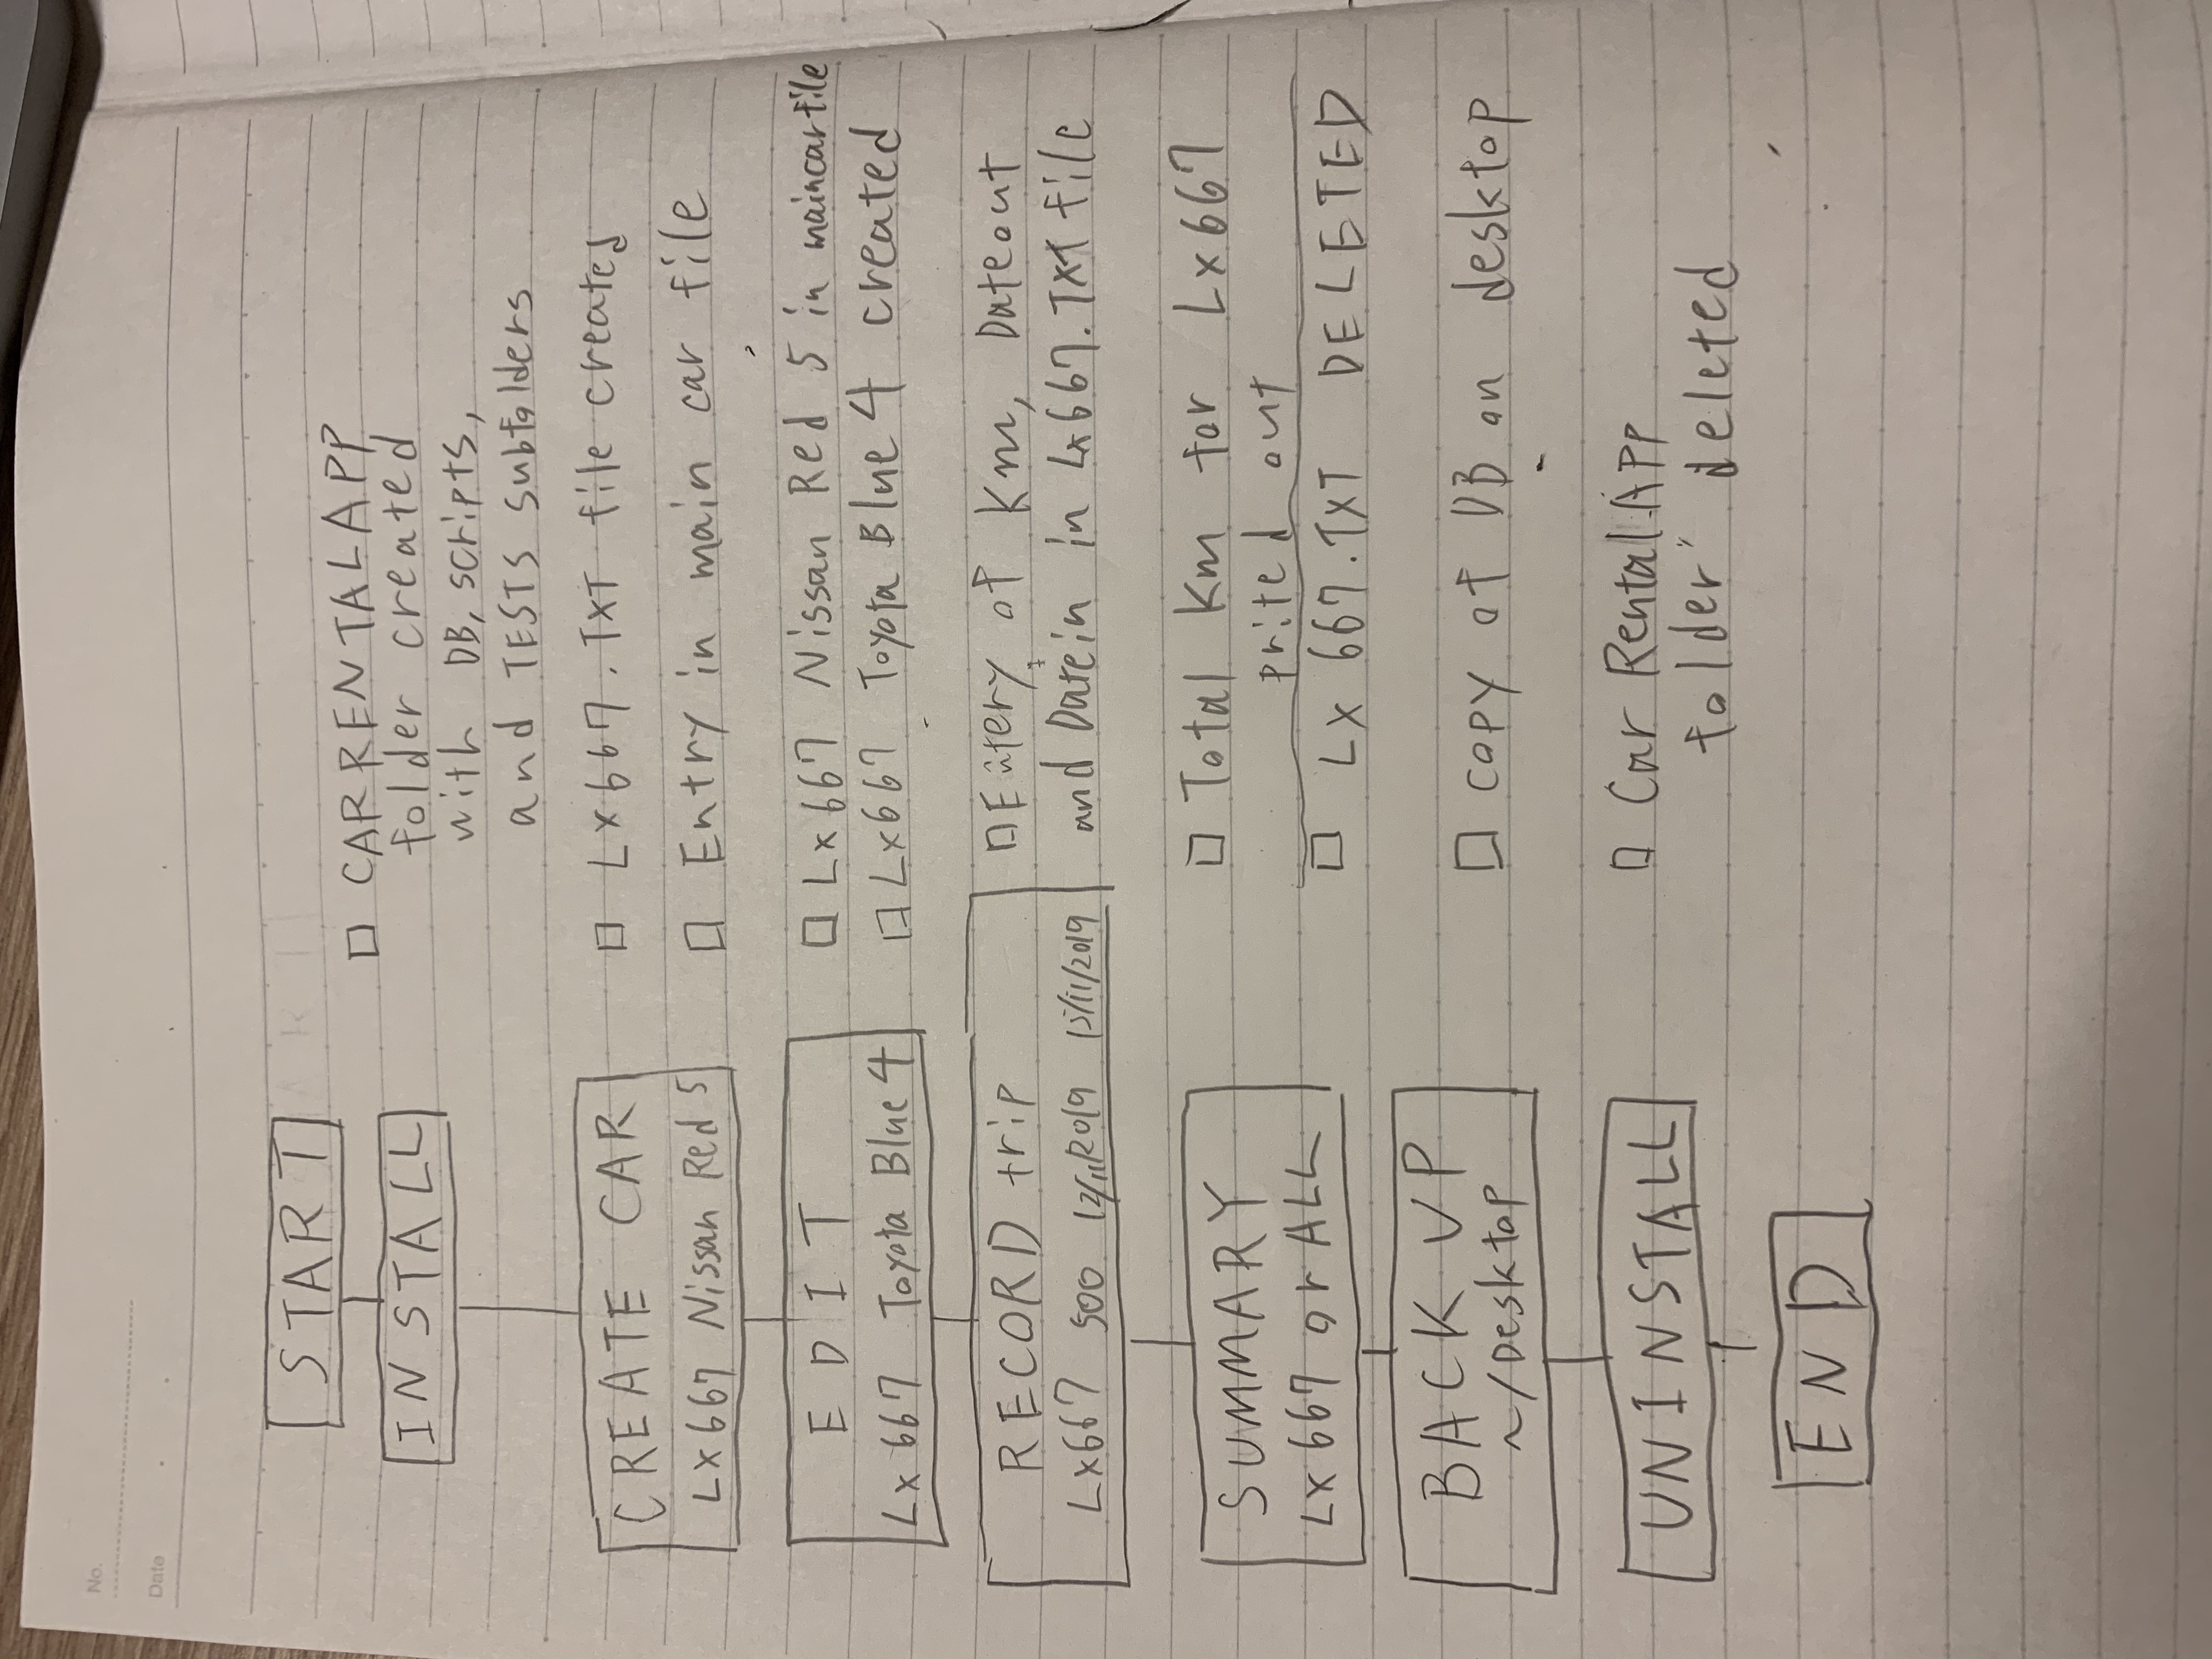 No.
Date
START
INSTALL
□ CARRENTALAPP
folder created
with DB, scripts,
and TESTS subfolders
CREATE CAR
Lx667 Nissan Red 5
□ Lx667.TXT file created
□ Entry in main car file
EDIT
Lx667 Toyota Blue 4
□ Lx667 Nissan Red 5 in maincarfile
□ Lx667 Toyota Blue 4 created
RECORD trip
Lx667 500 12/11/2019 15/11/2019
□ Entery of Km, Dateout
and Datein in Lx667.TXT file
SUMMARY
Lx667 or ALL
□ Total Km for Lx667
prited out
□ Lx667.TXT DELETED
BACK UP
~/Desktop
□ copy of DB on desktop
UNINSTALL
□ CarRentalAPP
folder deleted
END